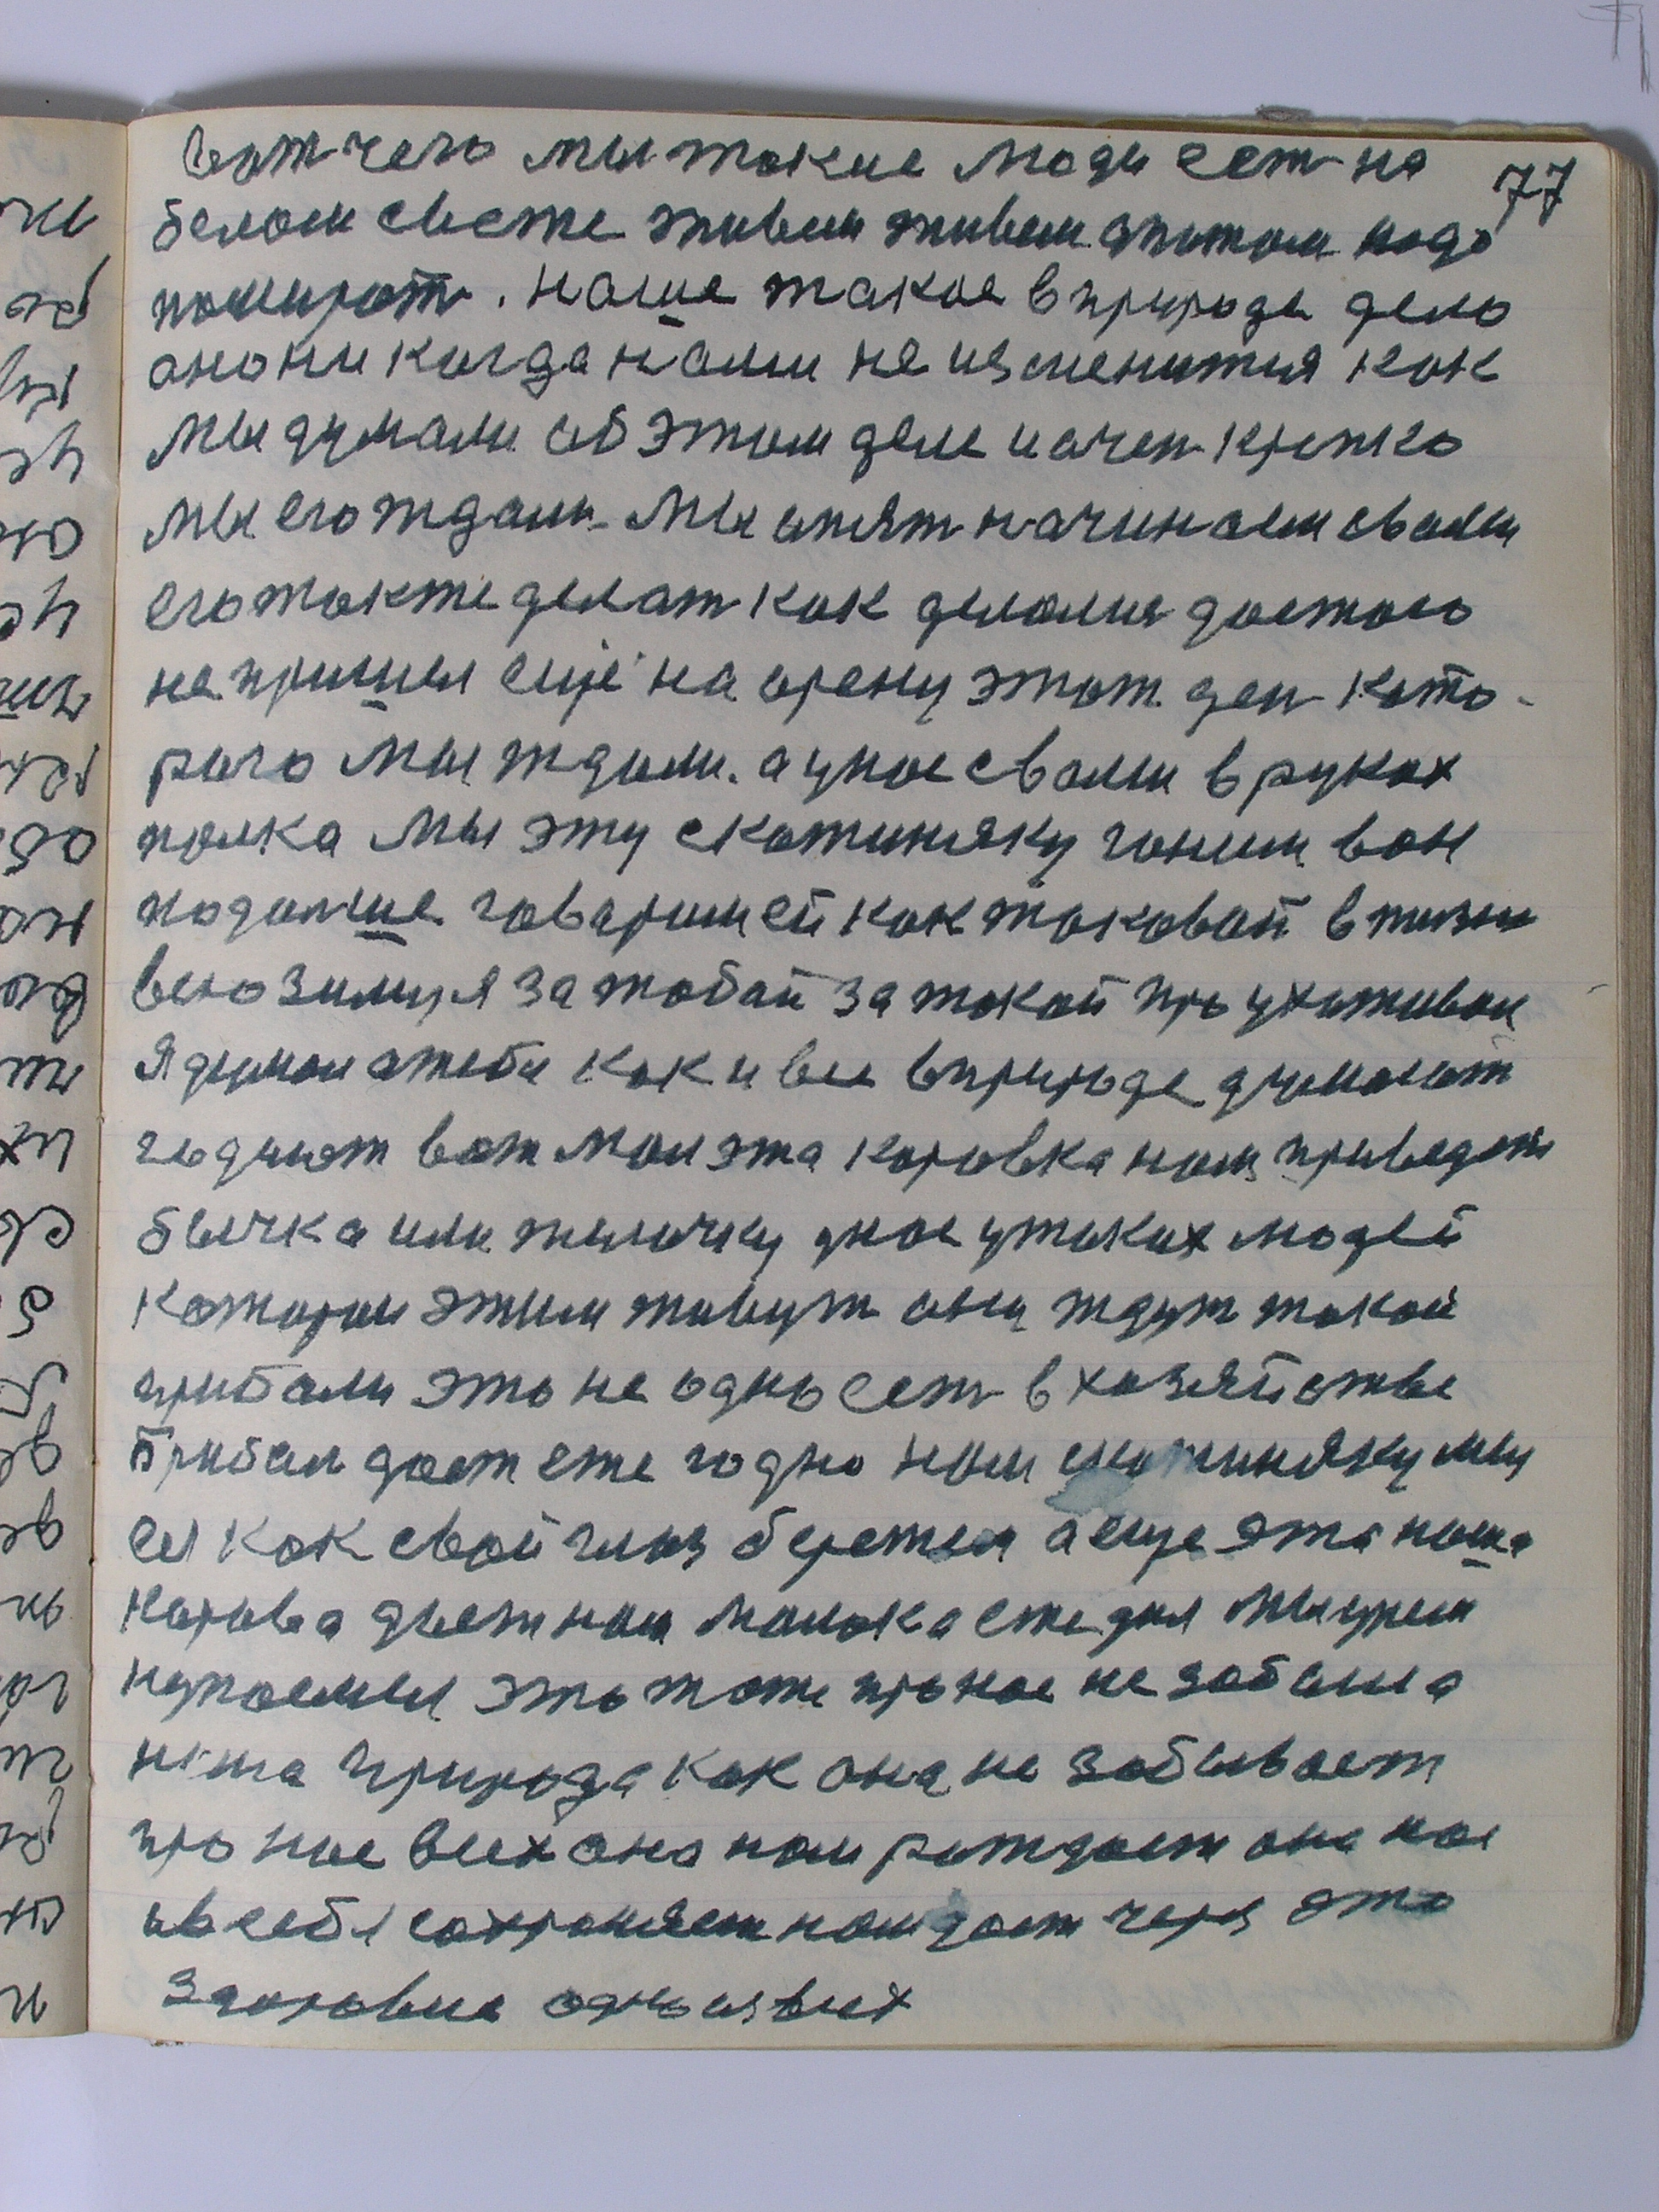 77
Вот чего мы такие люди ест на
белом свете живем живем апотом надо
помират. Наше такое вприроде дело
оно ни когда нами не изменится как
мы думали об этом деле и очен крепко
мы его ждали. Мы опят начинаем свами
его также делат как делали доэтого
не пришел ещё на арену этот ден кото-
рого мы ждали. а унас свами в руках
палка мы эту скотиняку гоним вон
подальше говарим ей как таковой в жизни
всю зиму я за тобой за такой про ухаживал
Я думал отебе как и все вприроде думают
гадают вот моя эта каровка нам приведет
бычка или теличку унас утаких людей
которые этим живут они ждут такой
прибали это не одно ест в хозяйстве
Прибал дает еже годно нам скотиняку мы
ея как свой глаз бережем а еще эта наша
карова дает нам молока еже дня мы
это тоже про нас не забыла
наша природа как она не забывает
про нас всех она нам рождает она нас
всебе сохраняет нам дает через это
Здоровие одно из всех